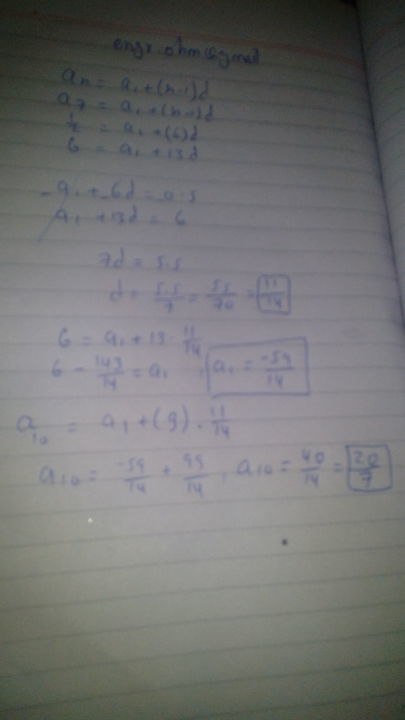 aₙ = a₁+(n-1)d
a₇ = a₁+(n-1)d
½ = a₁+(6)d
6 = a₁+13d
-a₁+-6d=0.5
a₁+13d = 6
7d = 5.5
d = 5.5/7 = 55/70 = 11/14
6 = a₁+13·11/14
6 - 143/14 = a₁, a₁ = -59/14
a₁₀ = a₁+(9)·11/14
a₁₀ = -59/14 + 99/14, a₁₀ = 40/14 = 20/7